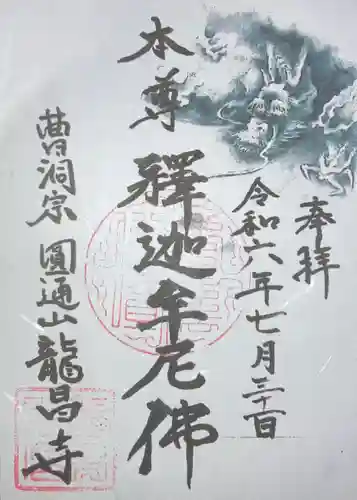 奉拝
令和六年七月三十一日
本尊 釋迦牟尼佛
曹洞宗 圓通山 龍昌寺